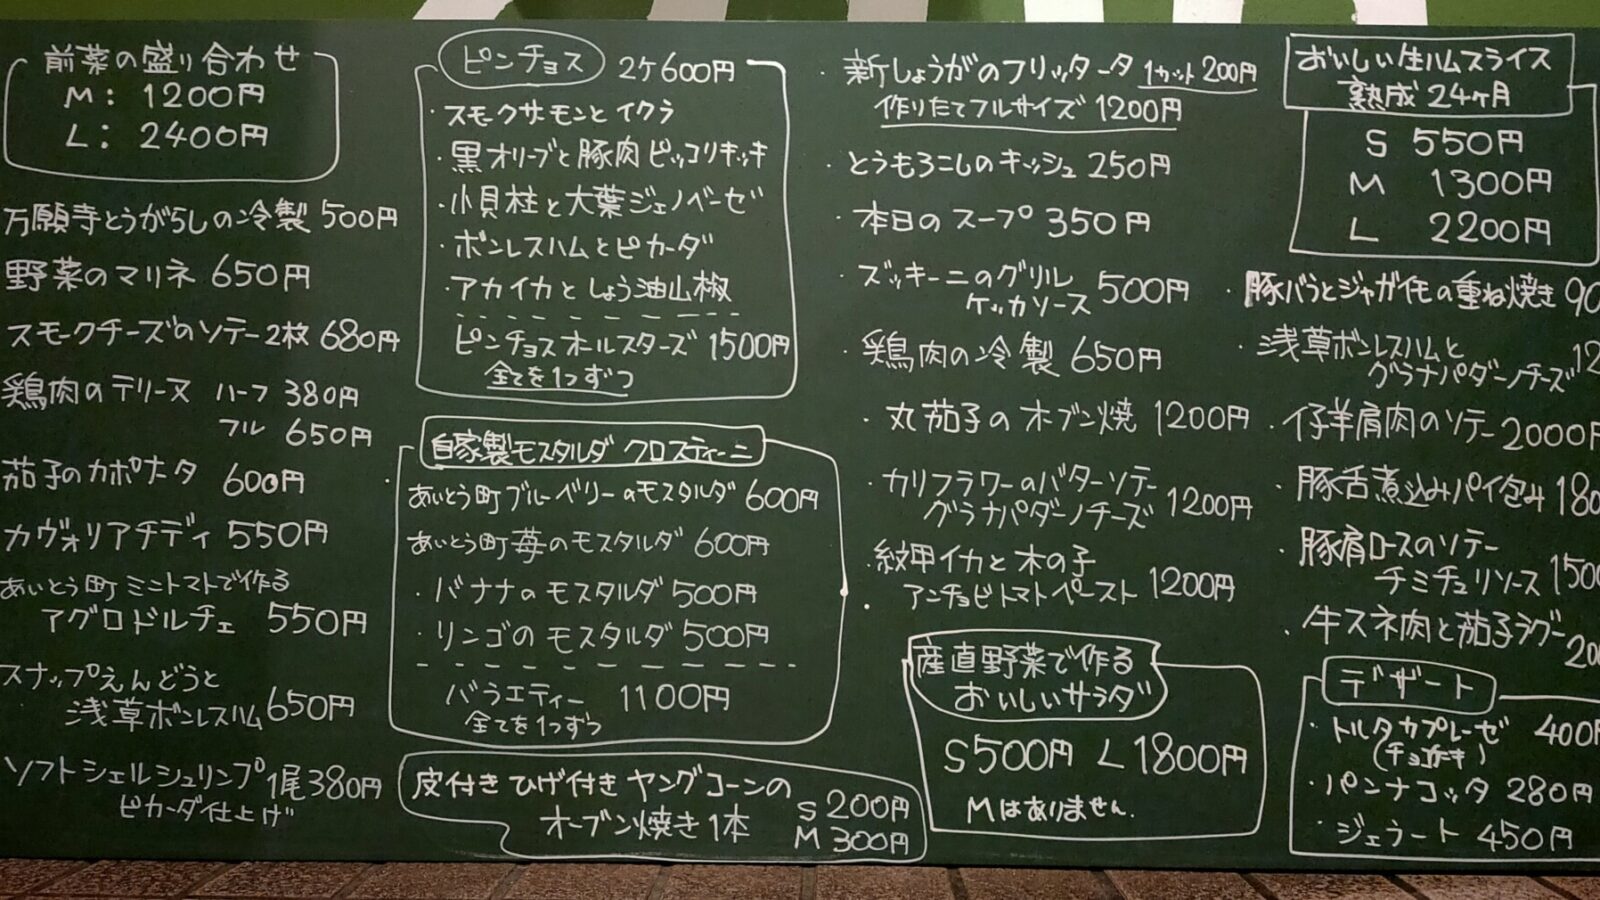 前菜の盛り合わせ
M: 1200円
L: 2400円
万願寺とうがらしの冷製 500円
野菜のマリネ 650円
スモークチーズのソテー2枚 680円
鶏肉のテリーヌ ハーフ 380円
フル 650円
茄子のカポナータ 600円
カヴォリアチディ 550円
あいとう町ミニトマトで作る
アグロドルチェ 550円
スナップえんどうと
浅草ボンレスハム 650円
ソフトシェルシュリンプ 1尾 380円
ピカーダ仕上げ
ピンチョス 2ケ600円
・スモークサーモンとイクラ
・黒オリーブと豚肉ピッコリキッキ
・小貝柱と大葉ジェノベーゼ
・ボンレスハムとピカーダ
・アカイカとしょう油山椒
ピンチョスオールスターズ 1500円
全てを1つずつ
自家製モスタルダ クロスティーニ
あいとう町ブルーベリーのモスタルダ 600円
あいとう町苺のモスタルダ 600円
・バナナのモスタルダ 500円
・リンゴのモスタルダ 500円
バラエティー 1100円
全てを1つずつ
皮付きひげ付きヤングコーンの
オーブン焼き1本 S 200円
M 300円
・新しょうがのフリッタータ 1カット 200円
作りたてフルサイズ 1200円
・とうもろこしのキッシュ 250円
・本日のスープ 350円
・ズッキーニのグリル
ケッカソース 500円
・鶏肉の冷製 650円
・丸茄子のオーブン焼 1200円
・カリフラワーのバターソテー
グラナパダーノチーズ 1200円
・紋甲イカと木の子
アンチョビトマトペースト 1200円
産直野菜で作る
おいしいサラダ
S500円 L1800円
Mはありません.
おいしい生ハムスライス
熟成 24ヶ月
S 550円
M 1300円
L 2200円
・豚バラとジャガイモの重ね焼き 90
・浅草ボンレスハムと
グラナパダーノチーズ 12
・仔羊肩肉のソテー 2000円
・豚舌煮込みパイ包み 180
・豚肩ロースのソテー
チミチュリソース 1500
・牛スネ肉と茄子ラグー 200
デザート
・トルタカプレーゼ 400円
・パンナコッタ 280円
・ジェラート 450円